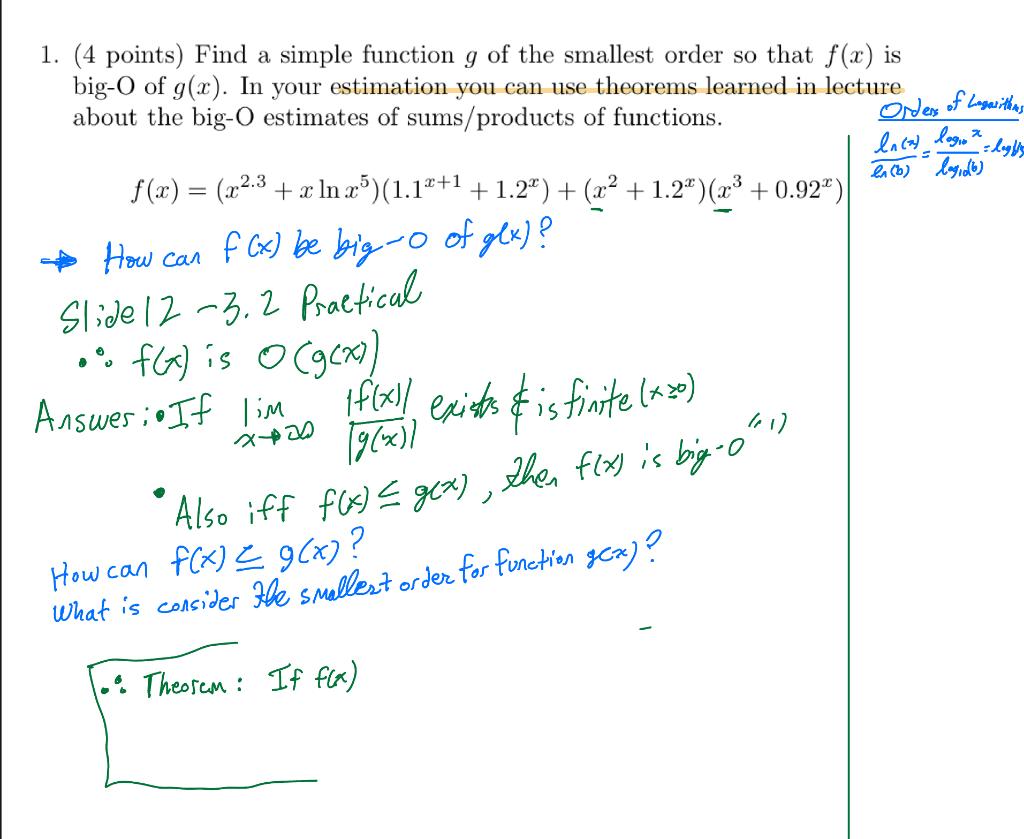 1. (4 points) Find a simple function g of the smallest order so that f(x) is
big-O of g(x). In your estimation you can use theorems learned in lecture
about the big-O estimates of sums/products of functions.
Orders of Logarithms
ln(x)/ln(b) = log₁₀x/log₁₀(b) =
f(x) = (x^2.3 + x ln x^5)(1.1^x+1 + 1.2^x) + (x^2 + 1.2^x)(x^3 + 0.92^x)
→ How can f(x) be big-O of g(x)?
Slide 12 - 3.2 Practical
∴ f(x) is O(g(x))
Answer: • If lim x→∞ |f(x)|/|g(x)| exists & is finite (x≥0)
• Also iff f(x) ≤ g(x), then f(x) is big-O "1)
How can f(x) ≤ g(x)?
What is consider the smallest order for function g(x)?
∴ Theorem: If f(x)